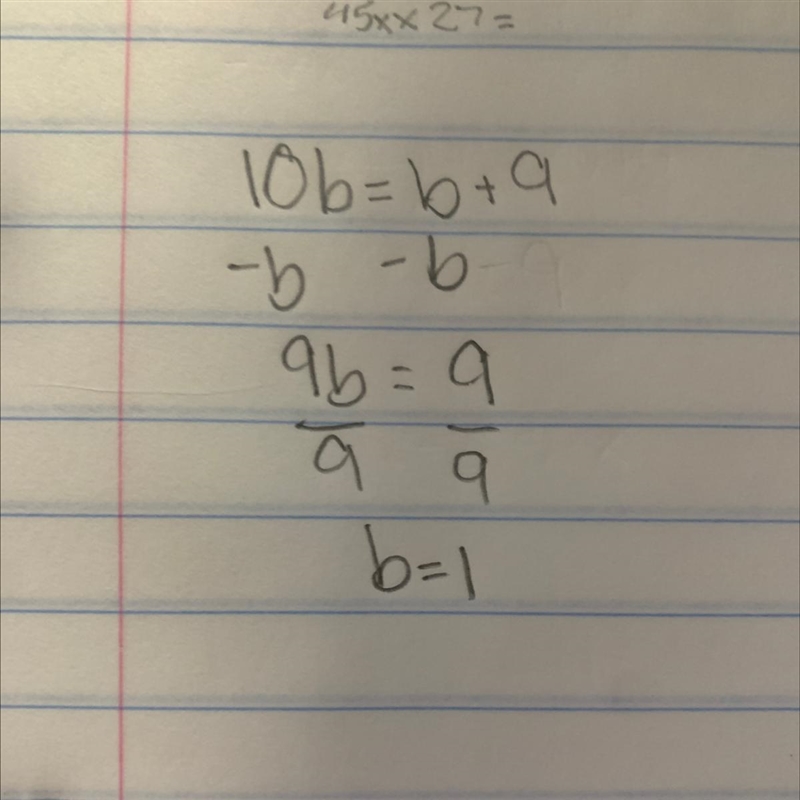 45xx27=
10b=b+9
-b -b
9b = 9
9 9
b=1